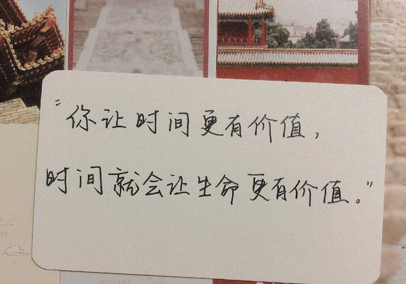 “你让时间更有价值,
时间就会让生命更有价值。”